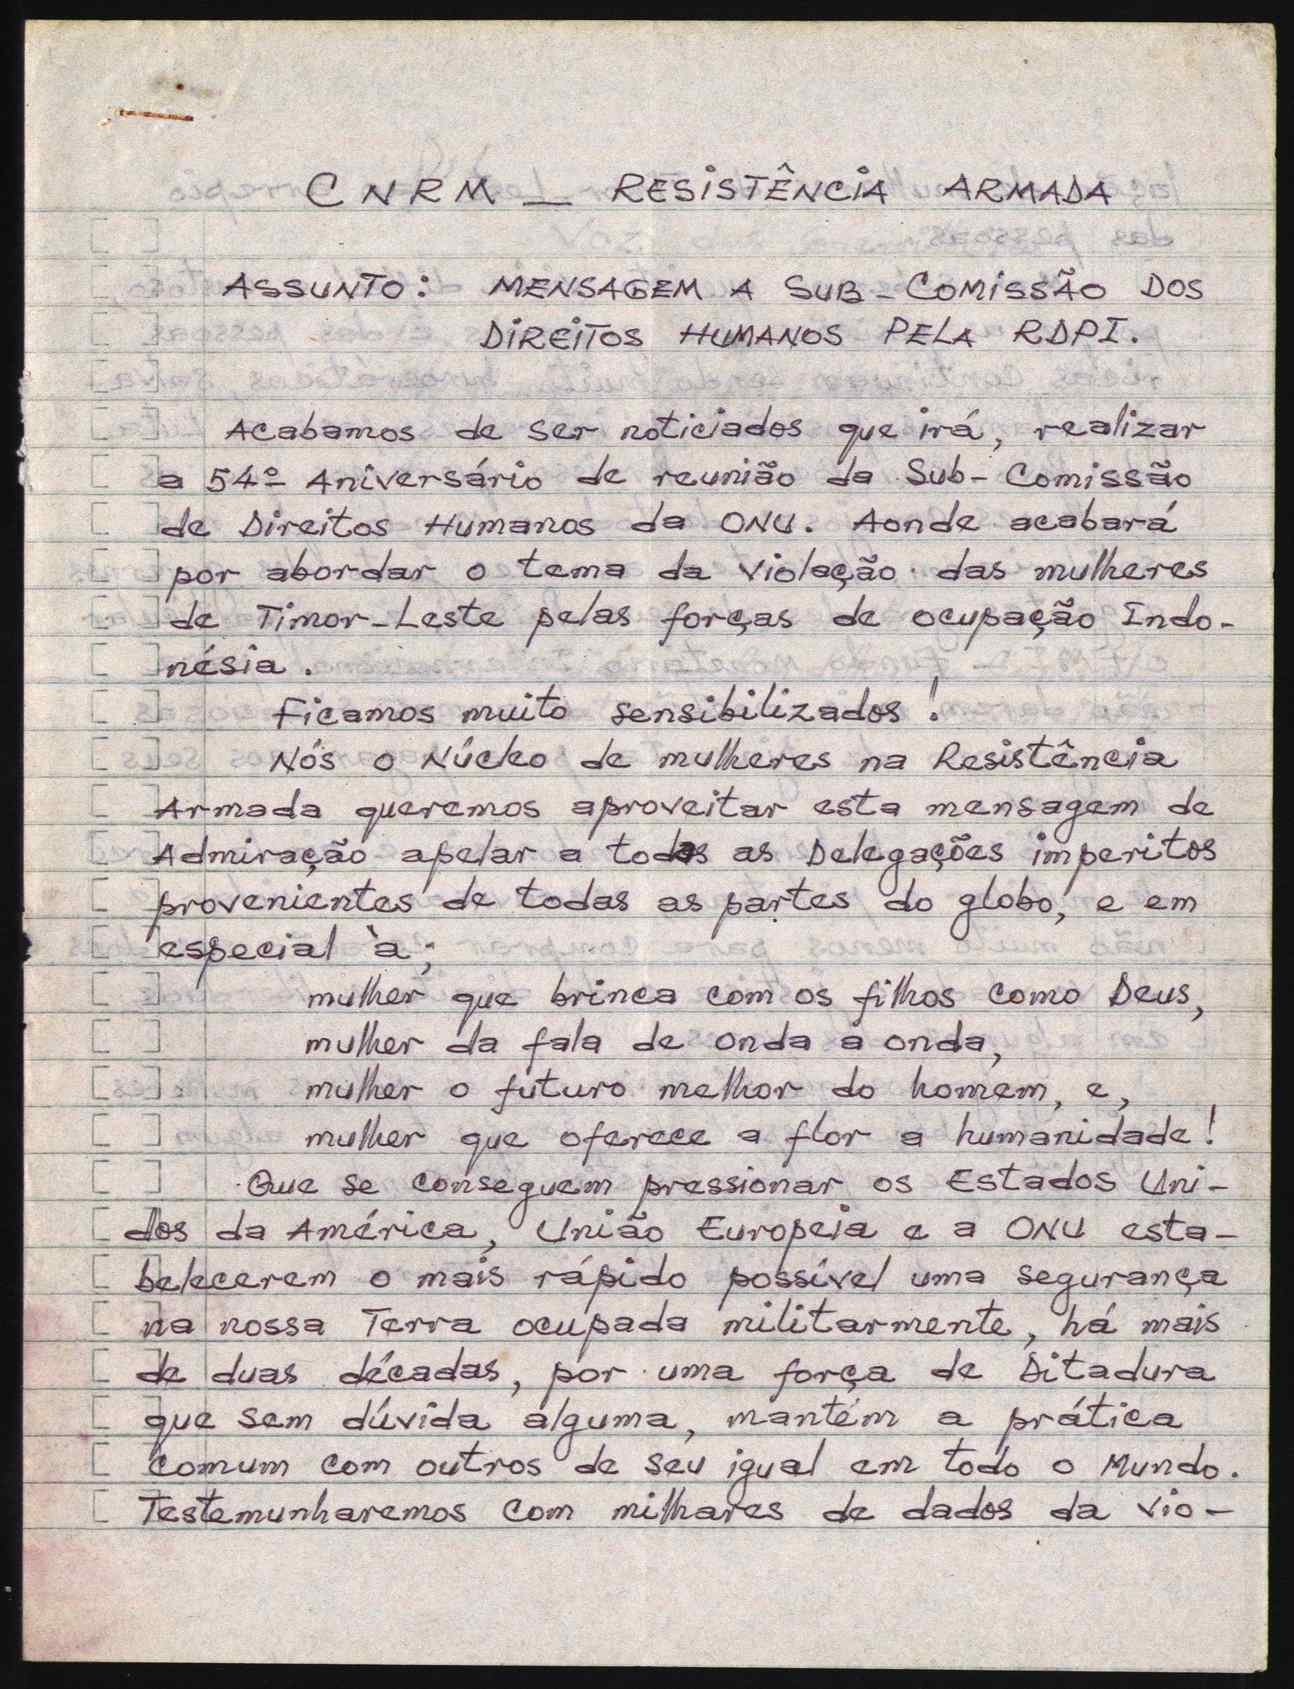 CNRM _ RESISTÊNCIA ARMADA
ASSUNTO: MENSAGEM A SUB-COMISSÃO DOS
DIREITOS HUMANOS PELA RDPI.
Acabamos de ser noticiados que irá, realizar
a 54º Aniversário de reunião da Sub-Comissão
de Direitos Humanos da ONU. Aonde acabará
por abordar o tema da violação das mulheres
de Timor-Leste pelas forças de ocupação Indo-
nésia.
Ficamos muito sensibilizados!
Nós o Núcleo de mulheres na Resistência
Armada queremos aproveitar esta mensagem de
Admiração apelar a todas as Delegações imperitos
provenientes de todas as partes do globo, e em
especial à;
mulher que brinca com os filhos como Deus,
mulher da fala de onda a onda,
mulher o futuro melhor do homem, e,
mulher que oferece a flor a humanidade!
Que se conseguem pressionar os Estados Uni-
dos da América, União Europeia e a ONU esta-
belecerem o mais rápido possível uma segurança
na nossa Terra ocupada militarmente, há mais
de duas décadas, por uma força de Ditadura
que sem dúvida alguma, mantém a prática
comum com outros de seu igual em todo o Mundo.
Testemunharemos com milhares de dados da vio-